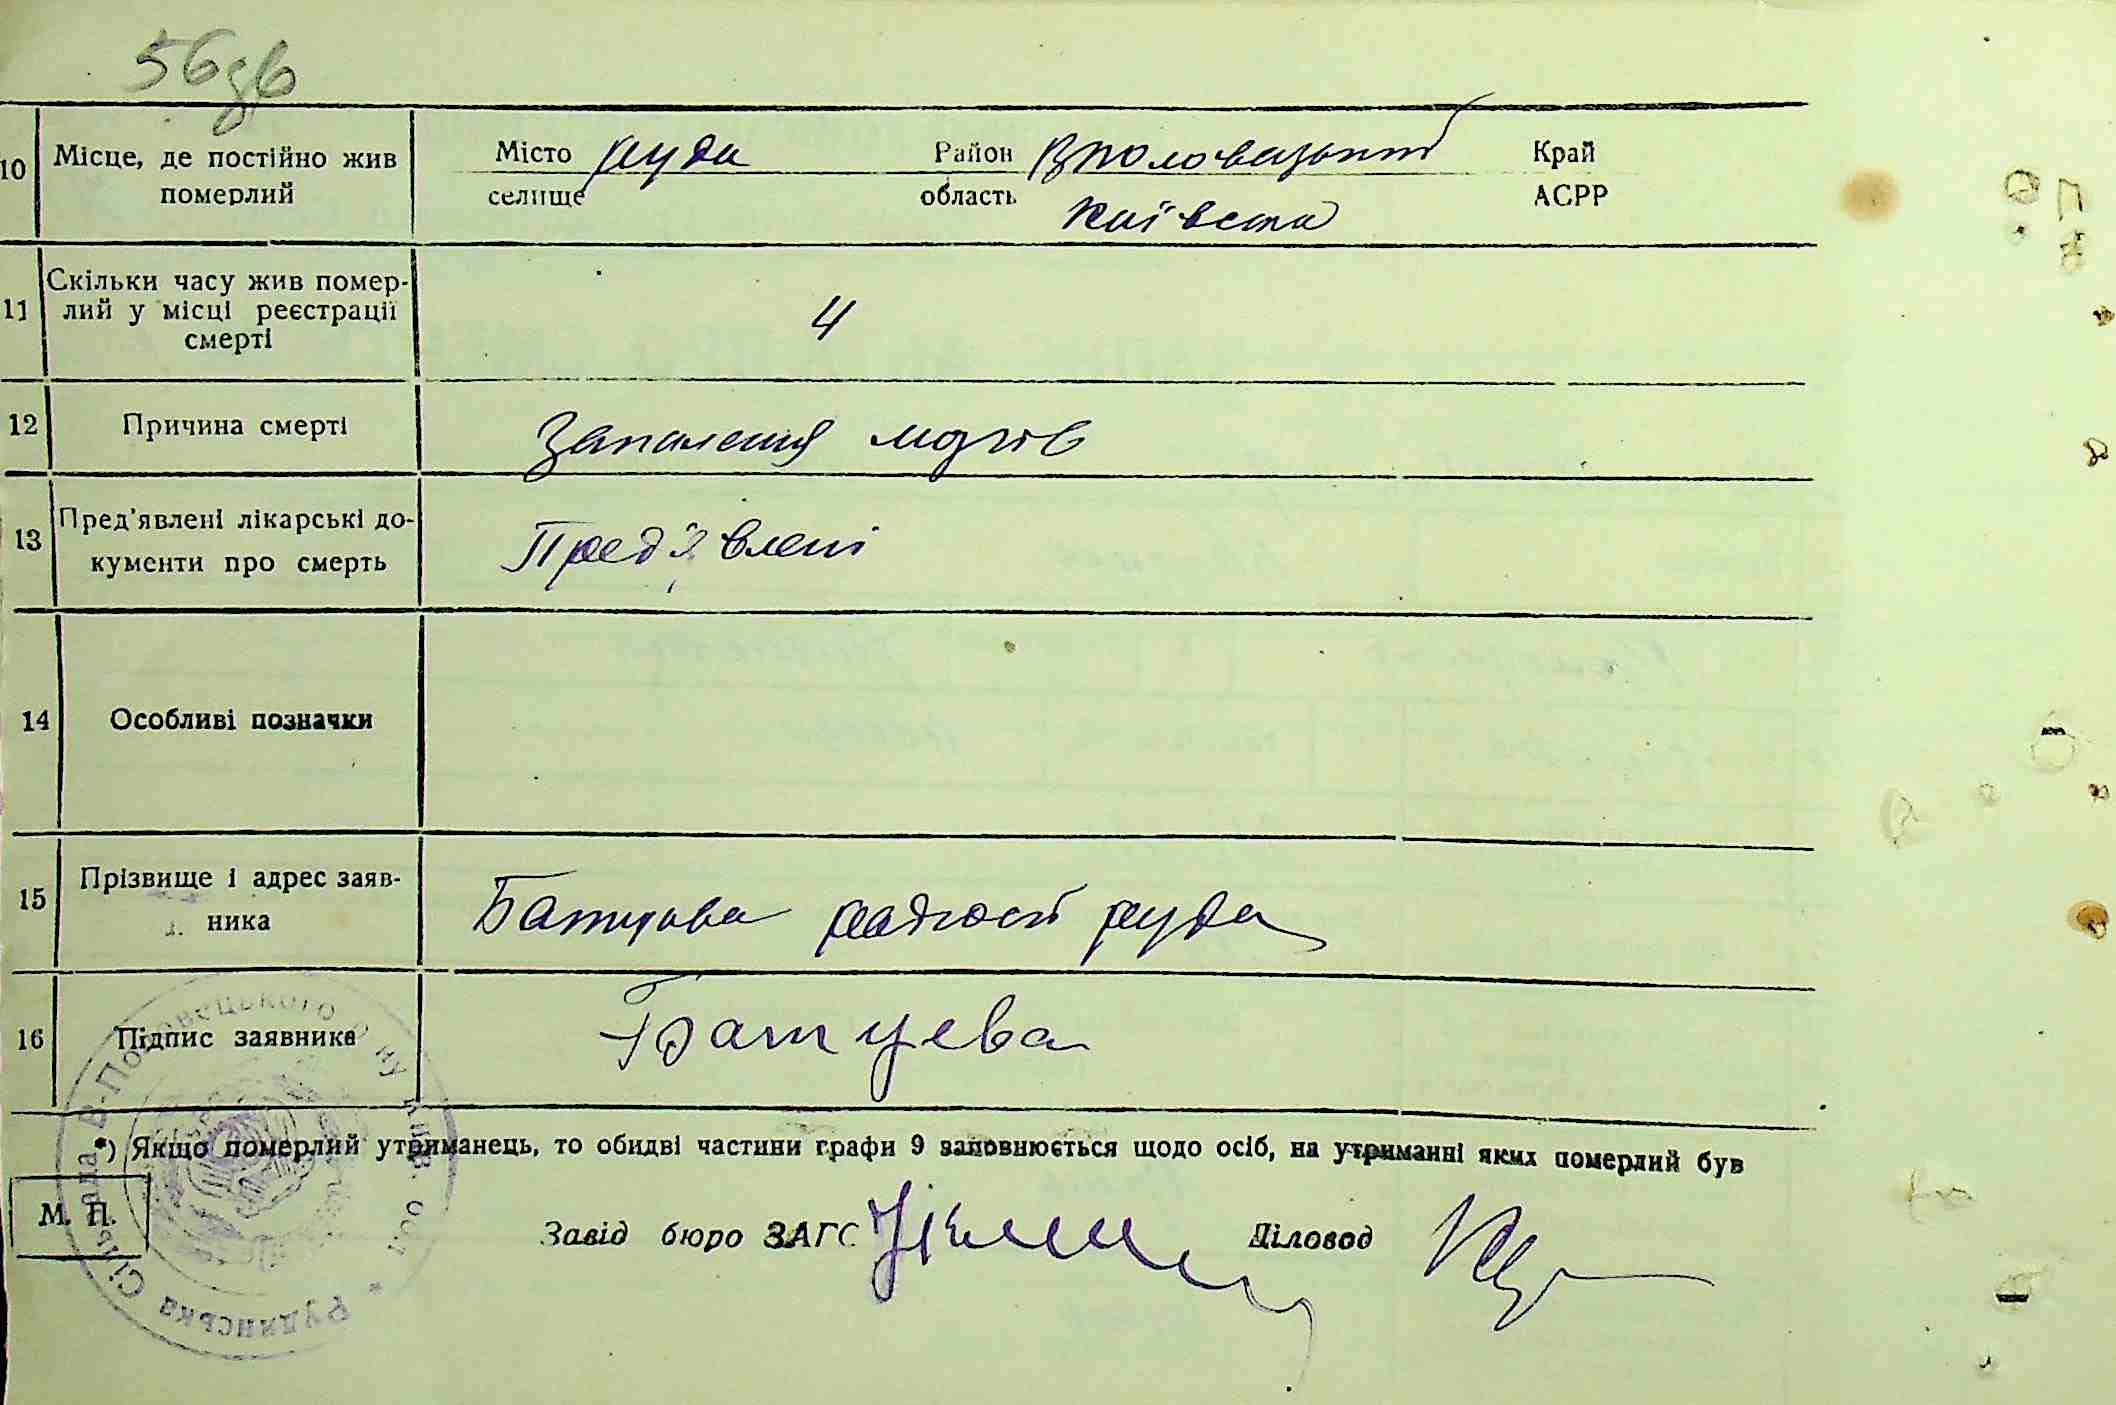 56зв
10 Місце, де постійно жив Місто Руда Район Вполовецький Край
померлий селище область Київська АСРР
11 Скільки часу жив помер-
лий у місці реєстрації 4
смерті
12 Причина смерті Запалення мозгів
13 Пред'явлені лікарські до- Пред'явлені
кументи про смерть
14 Особливі позначки
15 Прізвище і адрес заяв- Руда
ника
16 Підпис заявника Батуева
*) Якщо померлий утриманець, то обидві частини графи 9 заповнюється щодо осіб, на утриманні яких померлий був
М. П. Завід бюро ЗАГС Діловод
Рудинська Сільрада В-Половецького р-ну Київ. обл